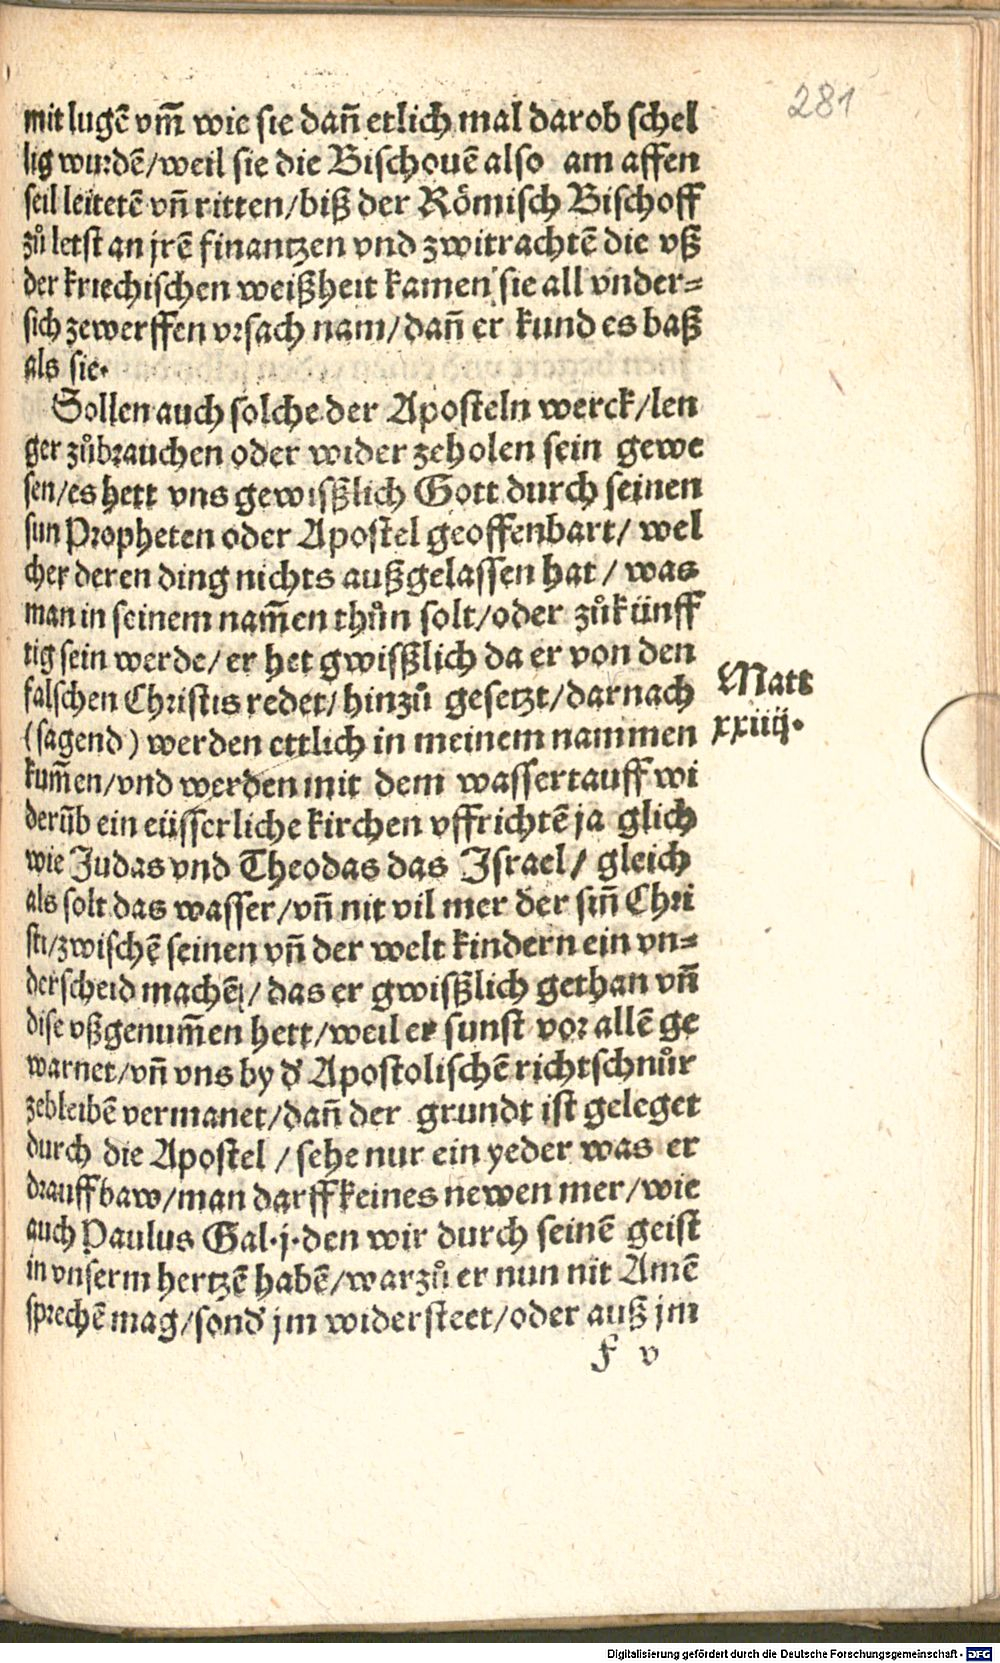 281
mit lugẽ vm̃ wie sie dañ etlich mal darob schel
lig wurdẽ/weil sie die Bischouẽ also am affen
seil leitetẽ vñ ritten/biß der Römisch Bischoff
zů letst an jrẽ finantzen vnd zwitrachtẽ die vß
der kriechischen weißheit kamen sie all vnder-
sich zewerffen vrsach nam/dañ er kund es baß
als sie.
Sollen auch solche der Aposteln werck/len
ger zůbrauchen oder wider zeholen sein gewe
sen/es hett vns gewißlich Gott durch seinen
sun Propheten oder Apostel geoffenbart/ wel
cher deren ding nichts außgelassen hat / was
man in seinem nam̃en thůn solt/oder zůkünff
tig sein werde/ er het gwißlich da er von den
falschen Christis redet/ hinzů gesetzt/darnach
(sagend) werden ettlich in meinem nammen
kum̃en/vnd werden mit dem wassertauff wi
derũb ein eüsserliche kirchen vffrichtẽ ja glich
wie Judas vnd Theodas das Israel/ gleich
als solt das wasser/vñ nit vil mer der siñ Chri
sti/zwischẽ seinen vñ der welt kindern ein vn-
derscheid machẽ/ das er gwißlich gethan vñ
dise vßgenum̃en hett/weil er sunst vor allẽ ge
warnet/vñ vns by d' Apostolischẽ richtschnůr
zebleibẽ vermanet/dañ der grundt ist geleget
durch die Apostel / sehe nur ein yeder was er
drauff baw/man darff keines newen mer/wie
auch Paulus Gal.j.den wir durch seinẽ geist
in vnserm hertzẽ habẽ/warzů er nun nit Amẽ
sprechẽ mag/sond' jm widersteet/oder auß jm
Matt
xxiiij.
F v
Digitalisierung gefördert durch die Deutsche Forschungsgemeinschaft - DFG